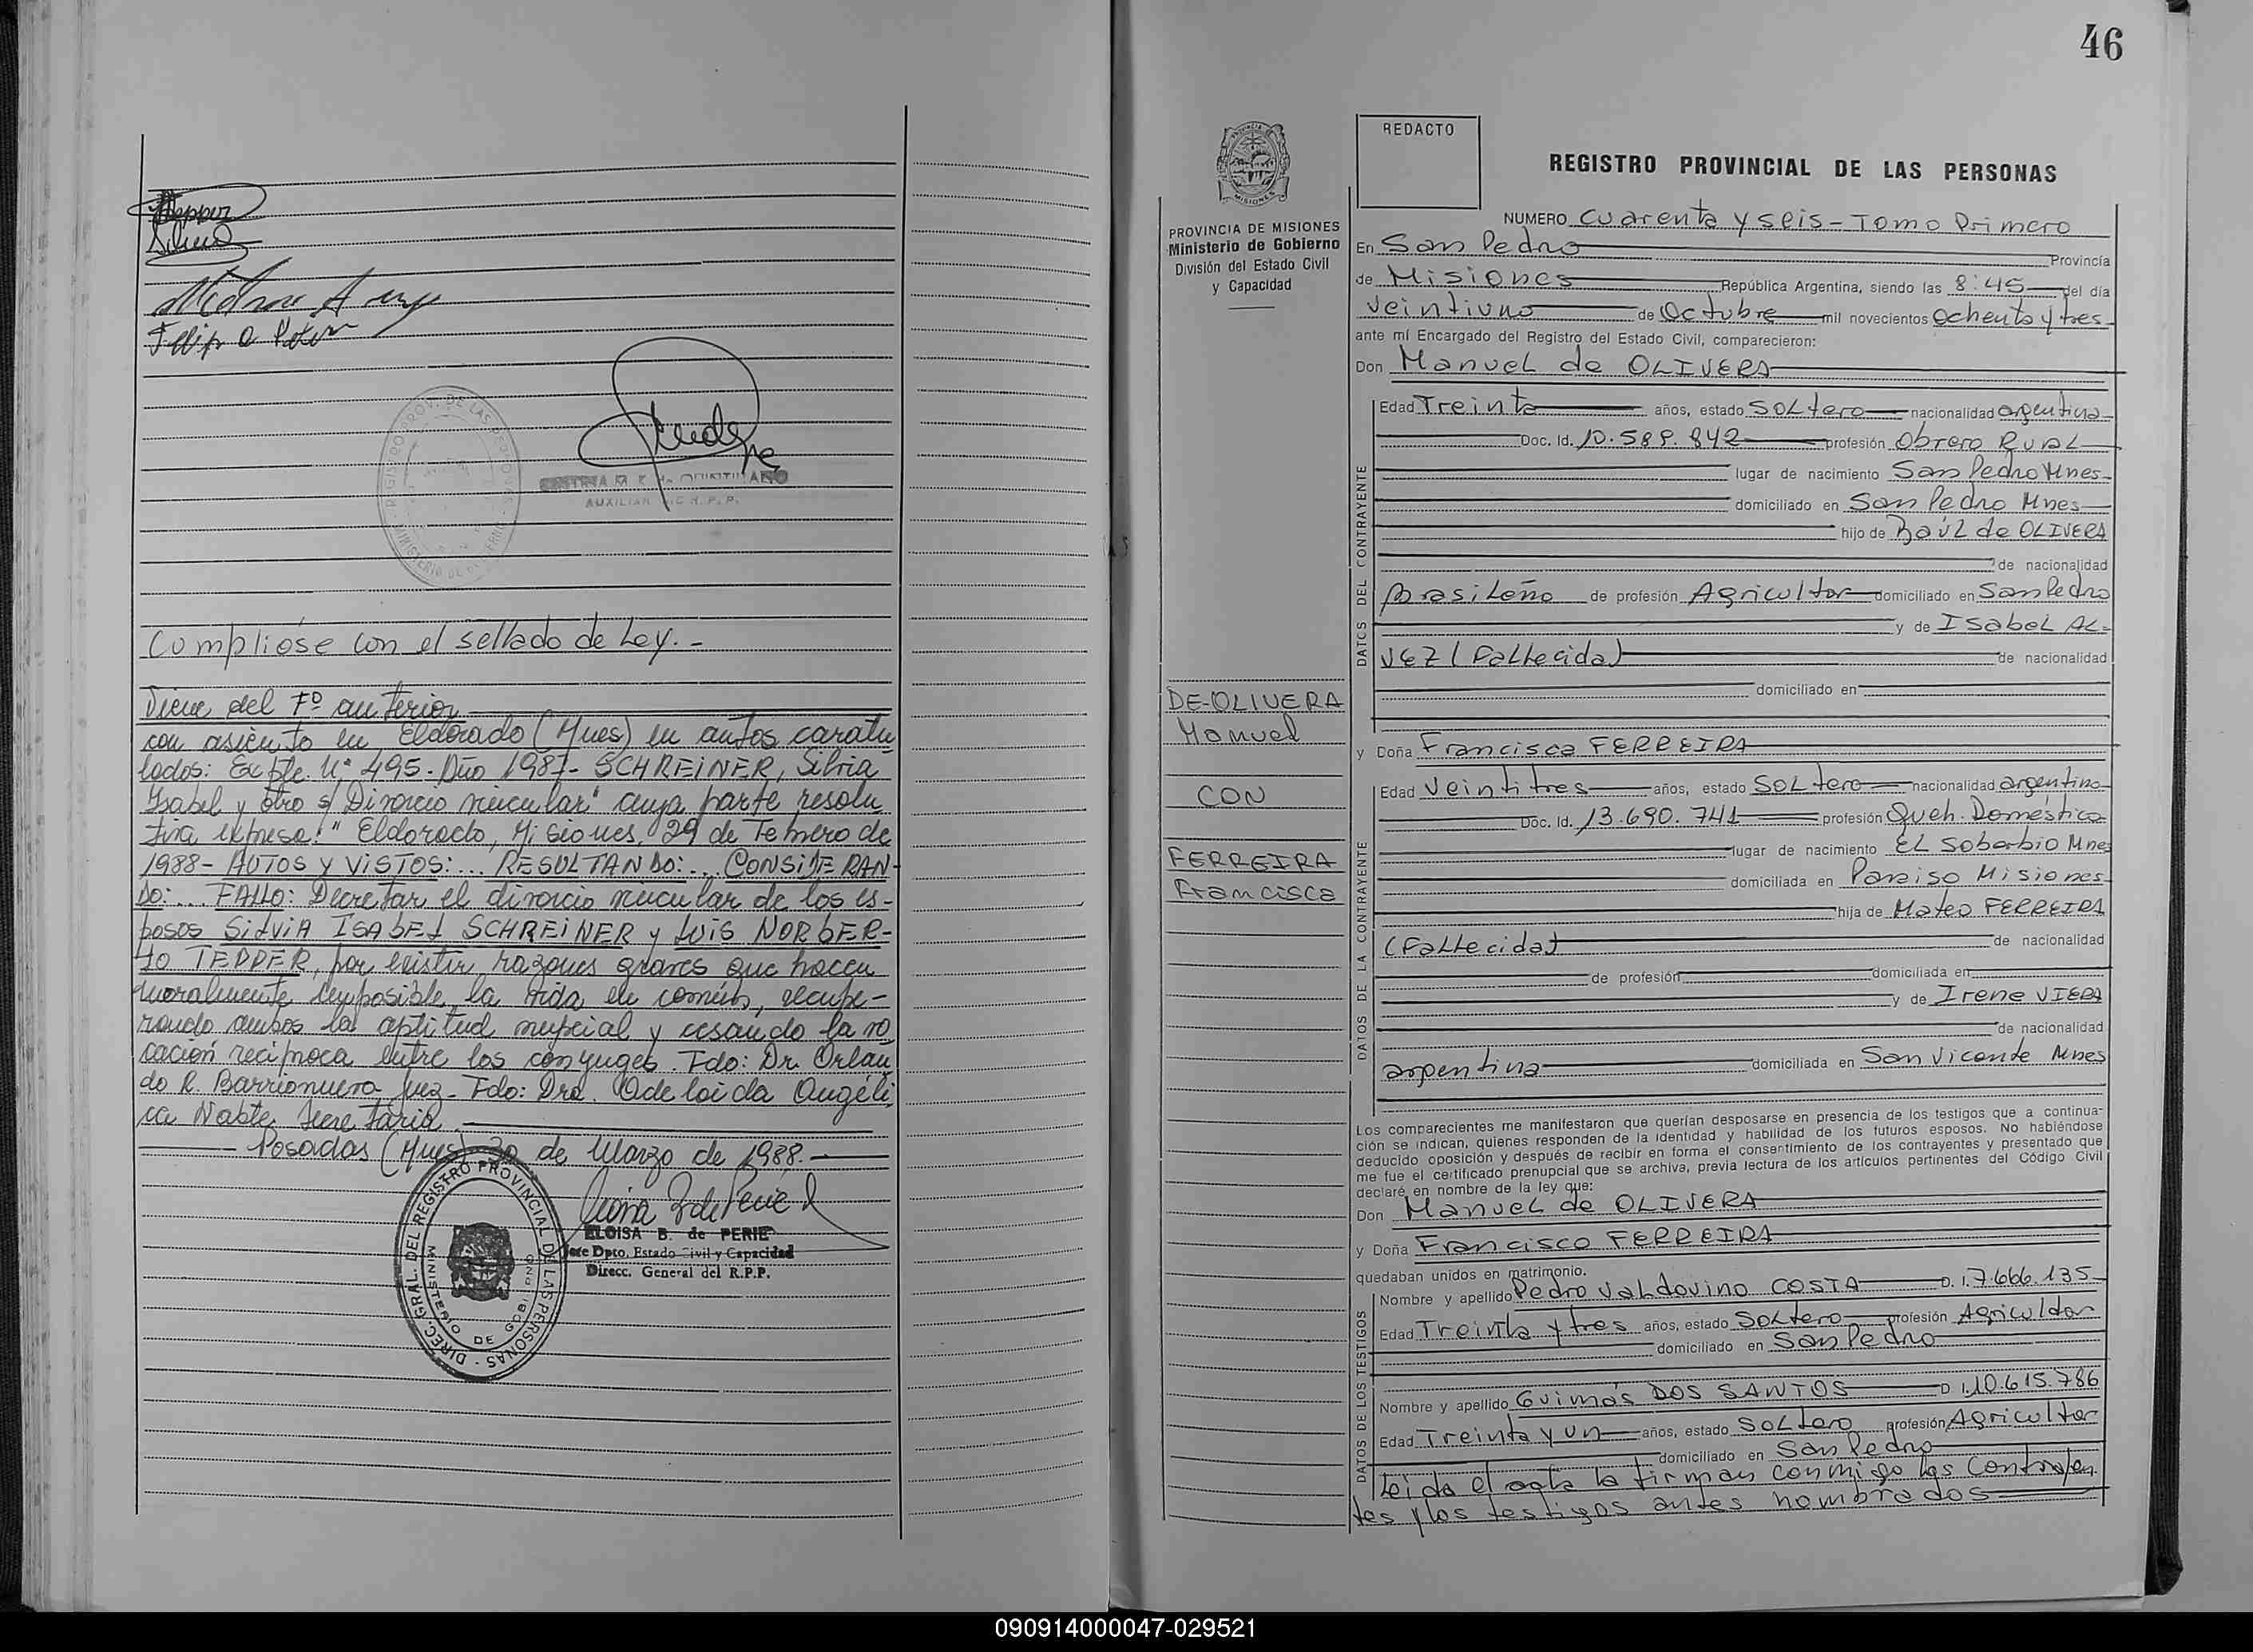 Tepper
Silvia
Cumpliose con el sellado de Ley.-
Viene del Fº anterior
con asiento en Eldorado (Mnes) en autos caratu
lados: Expte. Nº 495. Año 1987- SCHREINER, Silvia
Isabel y otro s/ Divorcio vincular" cuya parte resolu
tiva expresa: "Eldorado, Misiones, 29 de Febrero de
1988- AUTOS Y VISTOS:... RESULTANDO:... CONSIDERAN-
DO:... FALLO: Decretar el divorcio vincular de los es-
posos SILVIA ISABEL SCHREINER y LUIS NORBER-
TO TEPPER, por existir razones graves que hacen
moralmente imposible la vida en común, recupe-
rando ambos la aptitud nupcial y cesando la vo
cación recíproca entre los conyuges. Fdo: Dr. Orlan
do R. Barrionuevo Juez- Fdo: Dra. Angéli
ca Secretaria.
Posadas (Mnes) 30 de Marzo de 1988.-
ELOISA B. de PERIE
Jefe Dpto. Estado Civil y Capacidad
Direcc. General del R.P.P.
DIREC. GRAL. DEL REGISTRO PROVINCIAL DE LAS PERSONAS
MINISTERIO DE GOBIERNO
46
REDACTO
REGISTRO PROVINCIAL DE LAS PERSONAS
PROVINCIA DE MISIONES
Ministerio de Gobierno
División del Estado Civil
y Capacidad
DE-OLIVERA
Manuel
CON
FERREIRA
Francisca
NUMERO Cuarenta y seis - Tomo Primero
En San Pedro Provincia
de Misiones República Argentina, siendo las 8:45 del día
veintiuno de Octubre mil novecientos Ochenta y tres
ante mí Encargado del Registro del Estado Civil, comparecieron:
Don Manuel de OLIVERA
DATOS DEL CONTRAYENTE
Edad Treinta años, estado Soltero nacionalidad argentina
Doc. Id. 10.589.842 profesión Obrero Rural
lugar de nacimiento San Pedro Mnes
domiciliado en San Pedro Mnes
hijo de Raúl de OLIVERA
de nacionalidad
Brasileño de profesión Agricultor domiciliado en San Pedro
y de Isabel AL=
VEZ (Fallecida) de nacionalidad
domiciliado en
y Doña Francisca FERREIRA
DATOS DE LA CONTRAYENTE
Edad Veintitres años, estado Soltero nacionalidad argentina
Doc. Id. 13.690.741 profesión Queh. Doméstica
lugar de nacimiento El Soberbio Mnes
domiciliada en Paraiso Misiones
hija de Mateo FERREIRA
(Fallecida) de nacionalidad
de profesión domiciliada en
y de Irene VIERA
de nacionalidad
argentina domiciliada en San Vicente Mnes
Los comparecientes me manifestaron que querían desposarse en presencia de los testigos que a continua-
ción se indican, quienes responden de la identidad y habilidad de los futuros esposos. No habiéndose
deducido oposición y después de recibir en forma el consentimiento de los contrayentes y presentado que
me fue el certificado prenupcial que se archiva, previa lectura de los artículos pertinentes del Código Civil
declaré en nombre de la ley que:
Don Manuel de OLIVERA
y Doña Francisca FERREIRA
quedaban unidos en matrimonio.
DATOS DE LOS TESTIGOS
Nombre y apellido Pedro Valdovino COSTA D. I. 7.666.135
Edad Treinta y tres años, estado Soltero profesión Agricultor
domiciliado en San Pedro
Nombre y apellido Guimás DOS SANTOS D I. 10.615.786
Edad Treinta y un años, estado Soltero profesión Agricultor
domiciliado en San Pedro
Leida el acta la firman conmigo los Contrayen
tes y los testigos antes nombrados
090914000047-029521